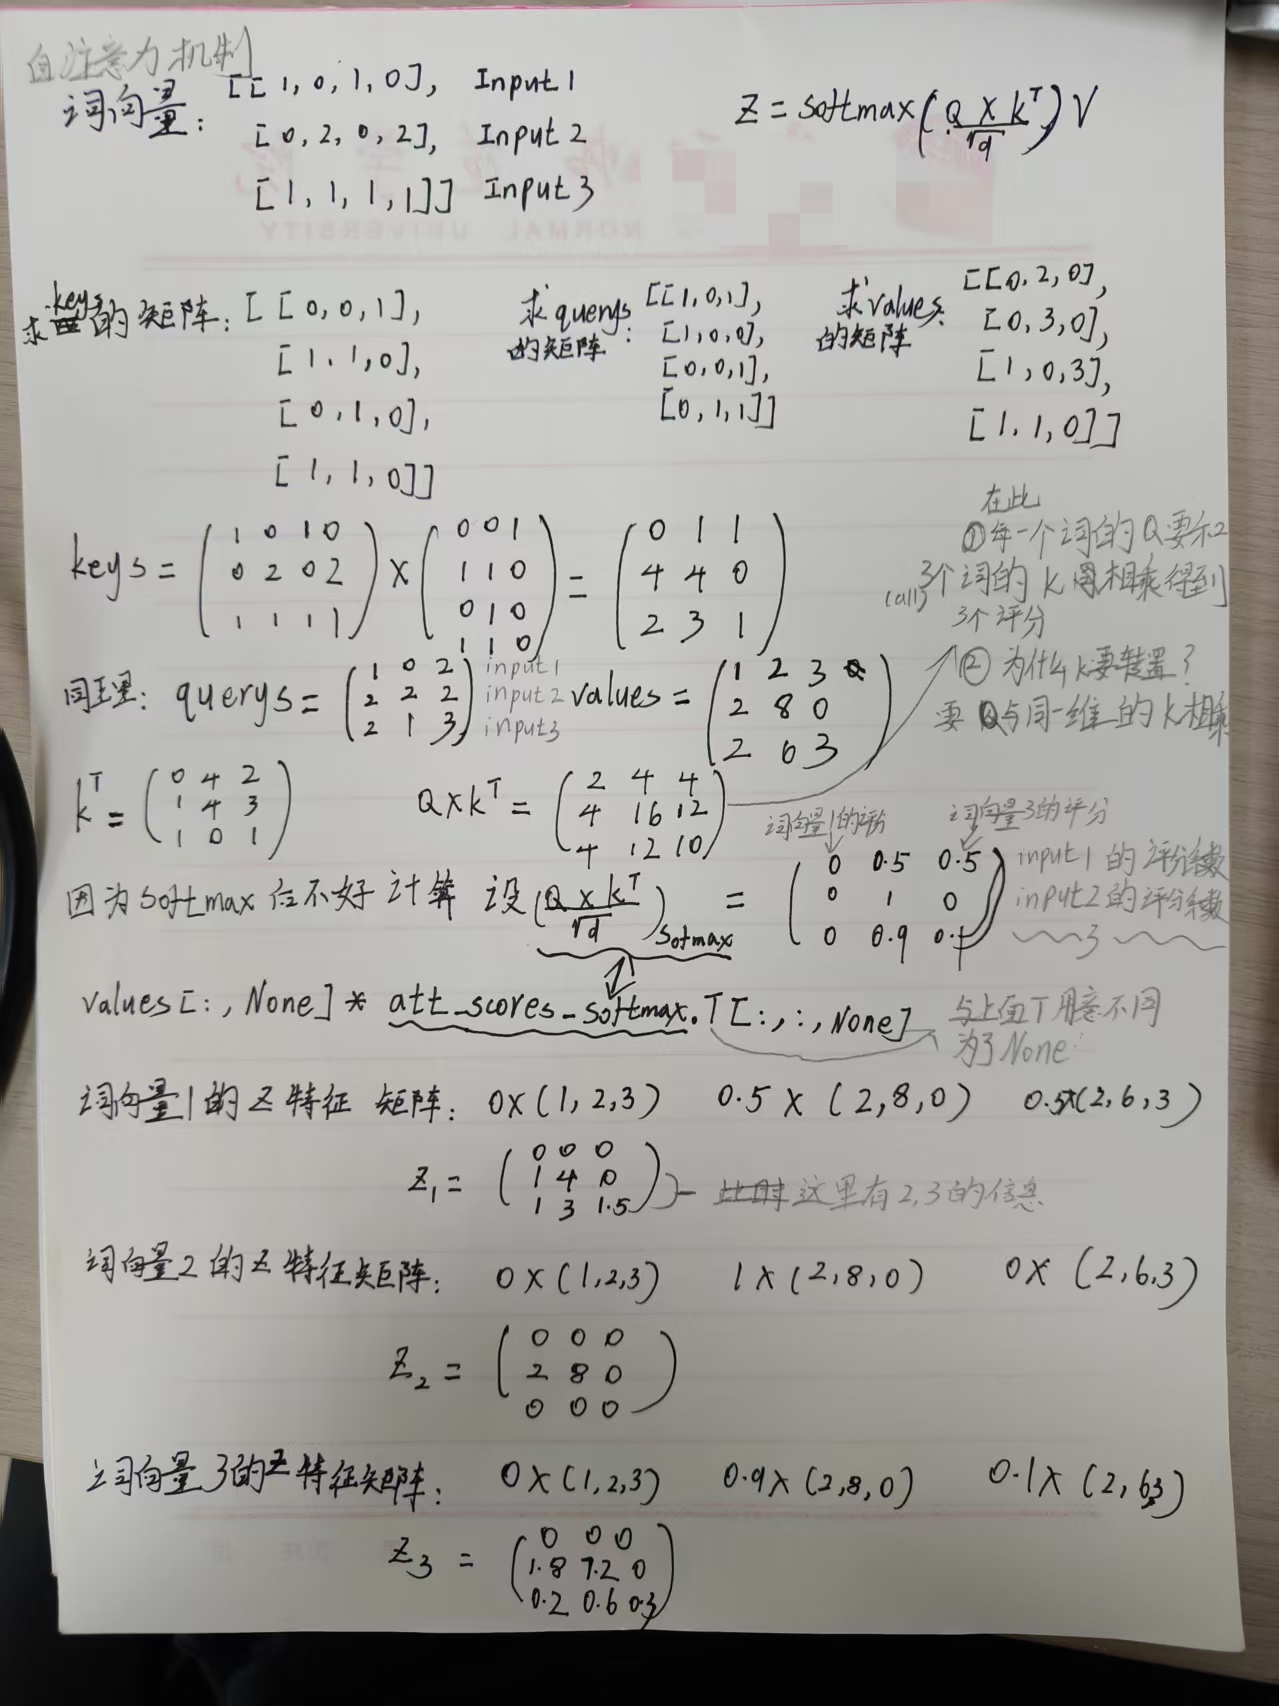 自注意力机制
词向量: [[1,0,1,0], Input1
[0,2,0,2], Input2
[1,1,1,1]] Input3
Z = softmax(Q X K^T / √d) V
NORMAL UNIVERSITY
求keys的矩阵: [[0,0,1],
[1,1,0],
[0,1,0],
[1,1,0]]
求querys的矩阵: [[1,0,1],
[1,0,0],
[0,0,1],
[0,1,1]]
求values的矩阵: [[0,2,0],
[0,3,0],
[1,0,3],
[1,1,0]]
keys = (1 0 1 0 / 0 2 0 2 / 1 1 1 1) X (0 0 1 / 1 1 0 / 0 1 0 / 1 1 0) = (0 1 1 / 4 4 0 / 2 3 1)
在此
①每一个词的Q要和
3个词的K 相乘得到
(all)
3个评分
②为什么K要转置?
要Q与同一维的K相乘
同理: querys = (1 0 2 / 2 2 2 / 2 1 3) input1 input2 input3
values = (1 2 3 / 2 8 0 / 2 6 3)
K^T = (0 4 2 / 1 4 3 / 1 0 1)
QXK^T = (2 4 4 / 4 16 12 / 4 12 10)
词向量1的评分 词向量3的评分
因为softmax 不好计算 设(Q X K^T / √d)softmax = (0 0.5 0.5 / 0 1 0 / 0 0.9 0.1)
input1的评分系数
input2的评分系数
3
values[:,None] * att_scores_softmax.T[:,:,None]
与上面T用意不同
为了None
词向量1的Z特征矩阵: 0X(1,2,3) 0.5X(2,8,0) 0.5X(2,6,3)
Z1 = (0 0 0 / 1 4 0 / 1 3 1.5)
此时这里有2,3的信息
词向量2的Z特征矩阵: 0X(1,2,3) 1X(2,8,0) 0X(2,6,3)
Z2 = (0 0 0 / 2 8 0 / 0 0 0)
词向量3的Z特征矩阵: 0X(1,2,3) 0.9X(2,8,0) 0.1X(2,6,3)
Z3 = (0 0 0 / 1.8 7.2 0 / 0.2 0.6 0.3)